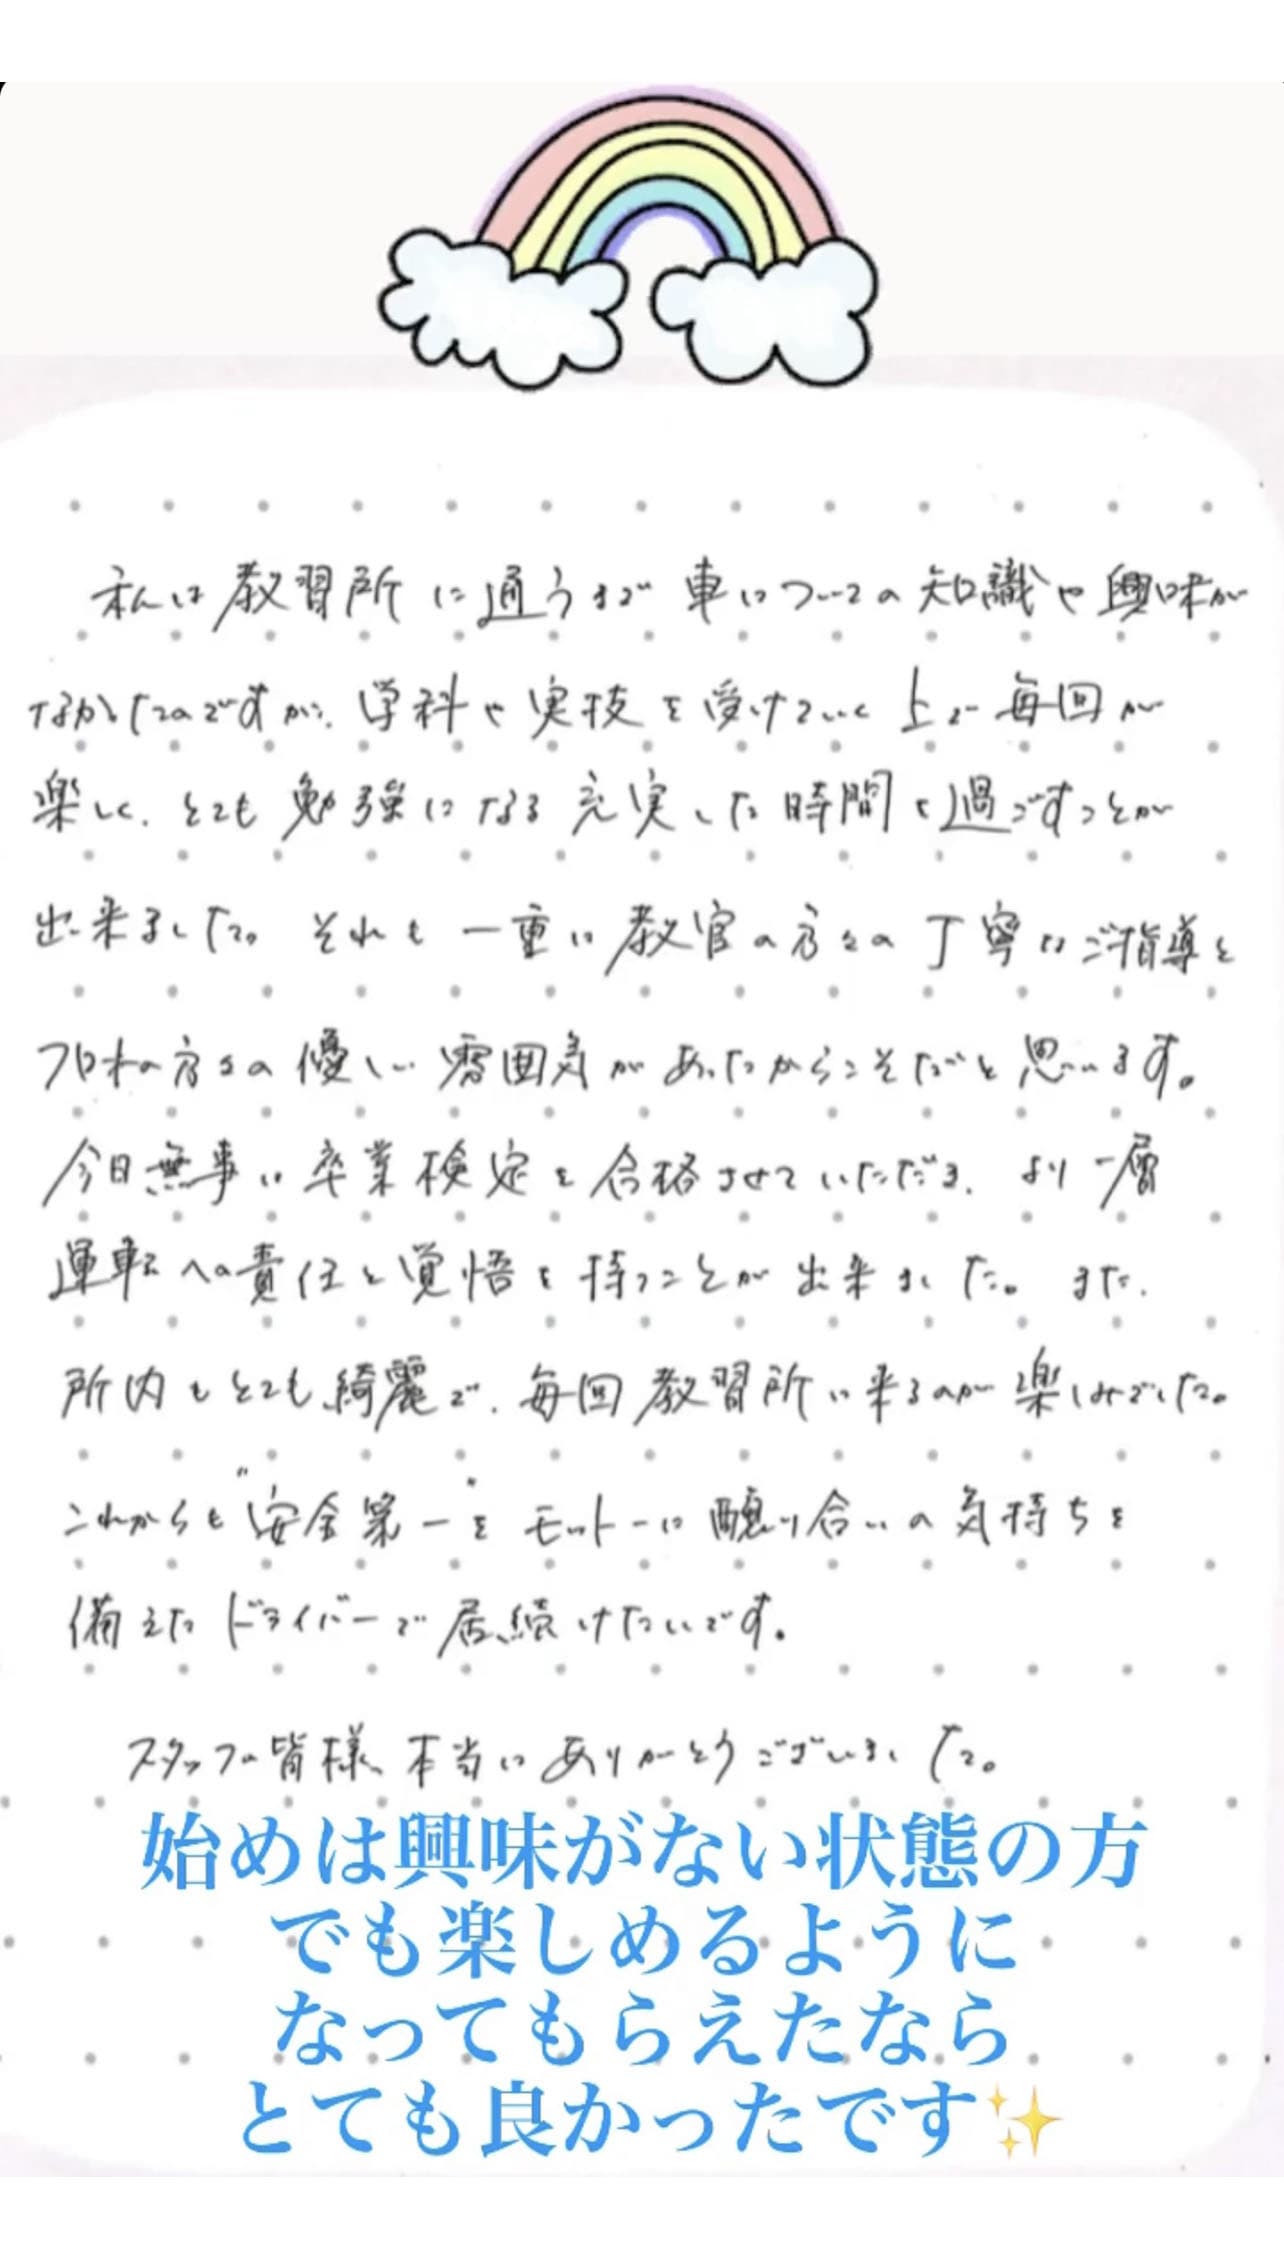 私は教習所に通うまで車についての知識や興味が
なかったのですが、学科や実技を受けていく上で毎回が
楽しく、とても勉強になる充実した時間を過ごすことが
出来ました。それも一重に教官の方々の丁寧なご指導と
フロントの方々の優しい雰囲気があったからこそだと思います。
今日無事に卒業検定を合格させていただき、より一層
運転への責任と覚悟を持つことが出来ました。また、
所内もとても綺麗で、毎回教習所に来るのが楽しみでした。
これからも"安全第一"をモットーに譲り合いの気持ちを
備えたドライバーで居続けたいです。
スタッフの皆様、本当にありがとうございました。
始めは興味がない状態の方
でも楽しめるように
なってもらえたなら
とても良かったです✨